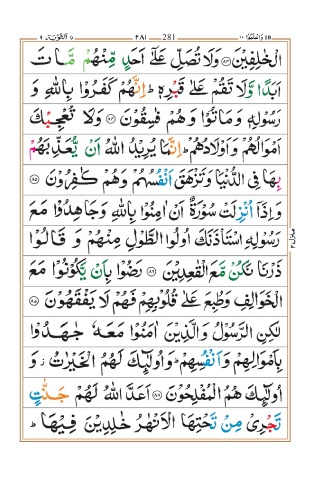 واعلموا ۱۰ 281 ۲۸۱ التوبة ۹
الْخٰلِفِیْنَ ۝۸۳ وَلَا تُصَلِّ عَلٰۤی اَحَدٍ مِّنْهُمْ مَّاتَ
اَبَدًا وَّلَا تَقُمْ عَلٰی قَبْرِهٖ ؕ اِنَّهُمْ كَفَرُوْا بِاللّٰهِ وَ
رَسُوْلِهٖ وَمَاتُوْا وَهُمْ فٰسِقُوْنَ ۝۸۴ وَلَا تُعْجِبْكَ
اَمْوَالُهُمْ وَاَوْلَادُهُمْ ؕ اِنَّمَا یُرِیْدُ اللّٰهُ اَنْ یُّعَذِّبَهُمْ
بِهَا فِی الدُّنْیَا وَتَزْهَقَ اَنْفُسُهُمْ وَهُمْ كٰفِرُوْنَ ۝۸۵
وَاِذَاۤ اُنْزِلَتْ سُوْرَةٌ اَنْ اٰمِنُوْا بِاللّٰهِ وَجَاهِدُوْا مَعَ
رَسُوْلِهِ اسْتَاْذَنَكَ اُولُوا الطَّوْلِ مِنْهُمْ وَ قَالُوْا
ذَرْنَا نَكُنْ مَّعَ الْقٰعِدِیْنَ ۝۸۶ رَضُوْا بِاَنْ یَّكُوْنُوْا مَعَ
الْخَوَالِفِ وَطُبِعَ عَلٰی قُلُوْبِهِمْ فَهُمْ لَا یَفْقَهُوْنَ ۝۸۷
لٰكِنِ الرَّسُوْلُ وَالَّذِیْنَ اٰمَنُوْا مَعَهٗ جٰهَدُوْا
بِاَمْوَالِهِمْ وَاَنْفُسِهِمْ ؕ وَاُولٰٓئِكَ لَهُمُ الْخَیْرٰتُ ؗ وَ
اُولٰٓئِكَ هُمُ الْمُفْلِحُوْنَ ۝۸۸ اَعَدَّ اللّٰهُ لَهُمْ جَنّٰتٍ
تَجْرِیْ مِنْ تَحْتِهَا الْاَنْهٰرُ خٰلِدِیْنَ فِیْهَا ؕ
منزل ۲